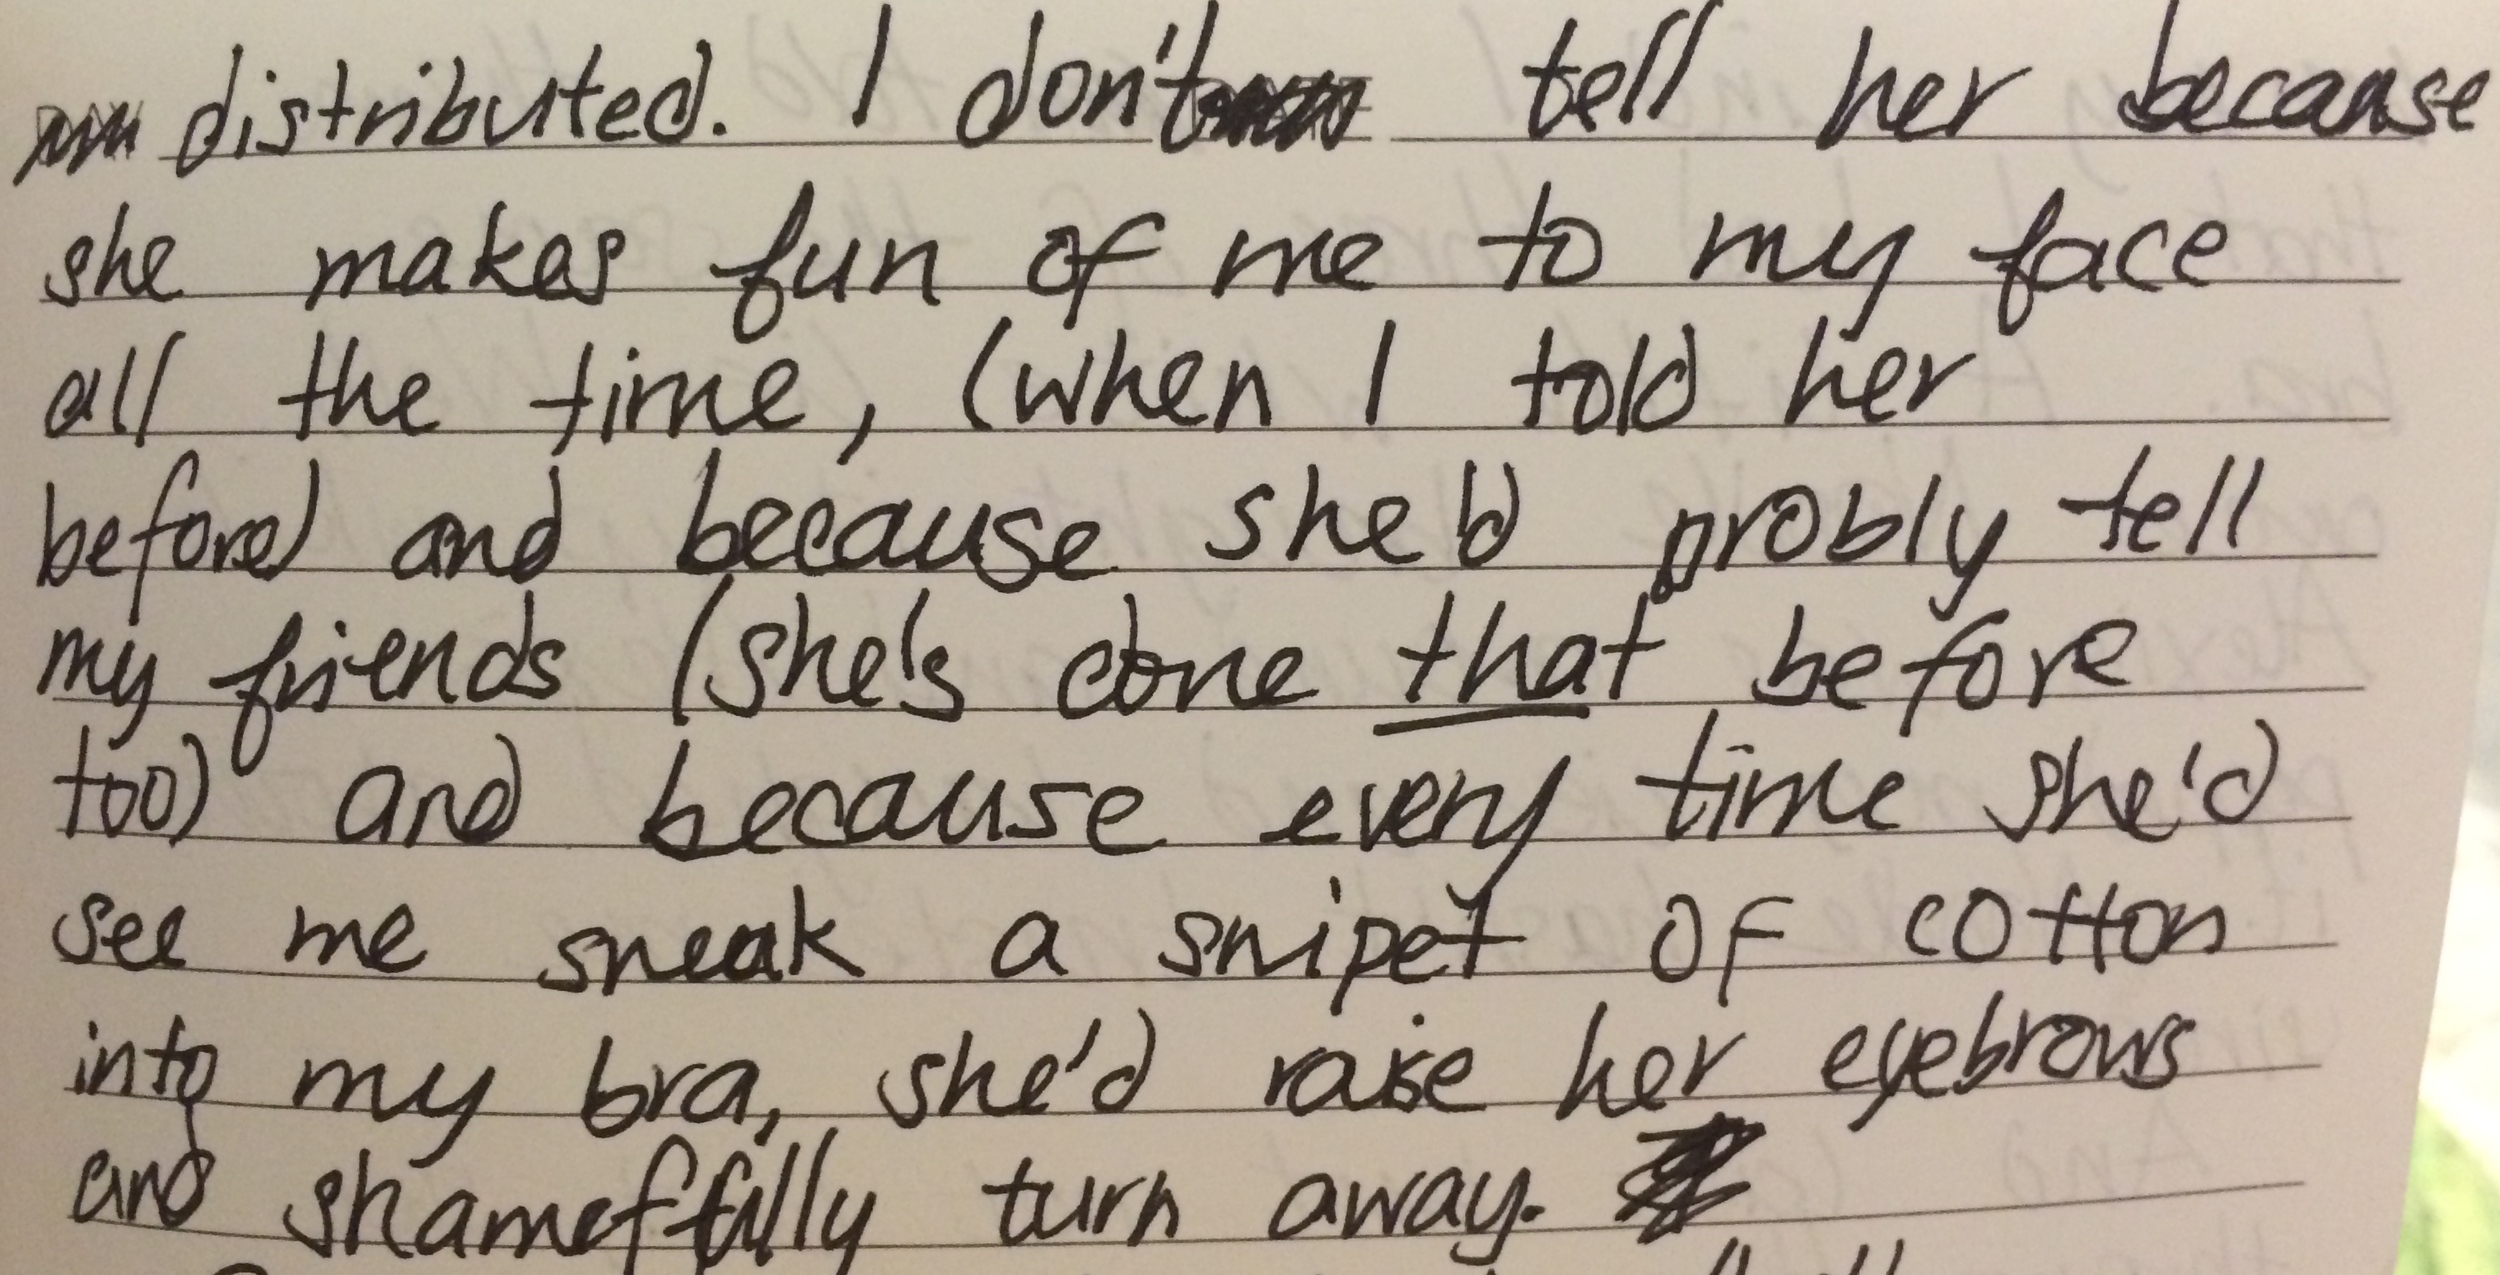 distributed. I don't tell her because
she makes fun of me to my face
all the time, (when I told her
before) and because she'd probly tell
my friends (she's done that before
too) and because every time she'd
see me sneak a snipet of cotton
into my bra, she'd raise her eyebrows
and shameffully turn away.